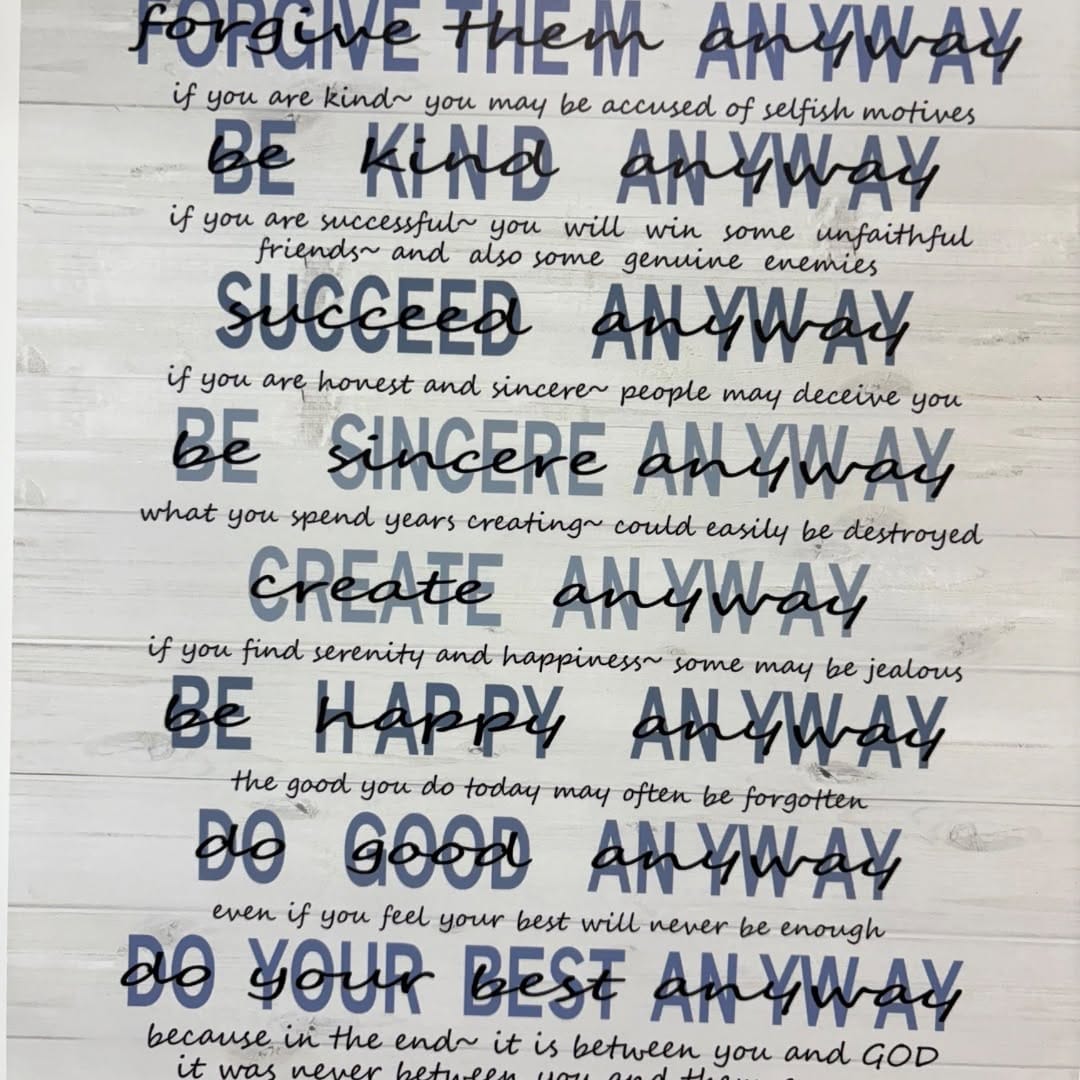 FORGIVE THEM ANYWAY
forgive them anyway
if you are kind~ you may be accused of selfish motives
BE KIND ANYWAY
be kind anyway
if you are successful~ you will win some unfaithful
friends~ and also some genuine enemies
SUCCEED ANYWAY
succeed anyway
if you are honest and sincere~ people may deceive you
BE SINCERE ANYWAY
be sincere anyway
what you spend years creating~ could easily be destroyed
CREATE ANYWAY
create anyway
if you find serenity and happiness~ some may be jealous
BE HAPPY ANYWAY
be happy anyway
the good you do today may often be forgotten
DO GOOD ANYWAY
do good anyway
even if you feel your best will never be enough
DO YOUR BEST ANYWAY
do your best anyway
because in the end~ it is between you and GOD
it was never between you and